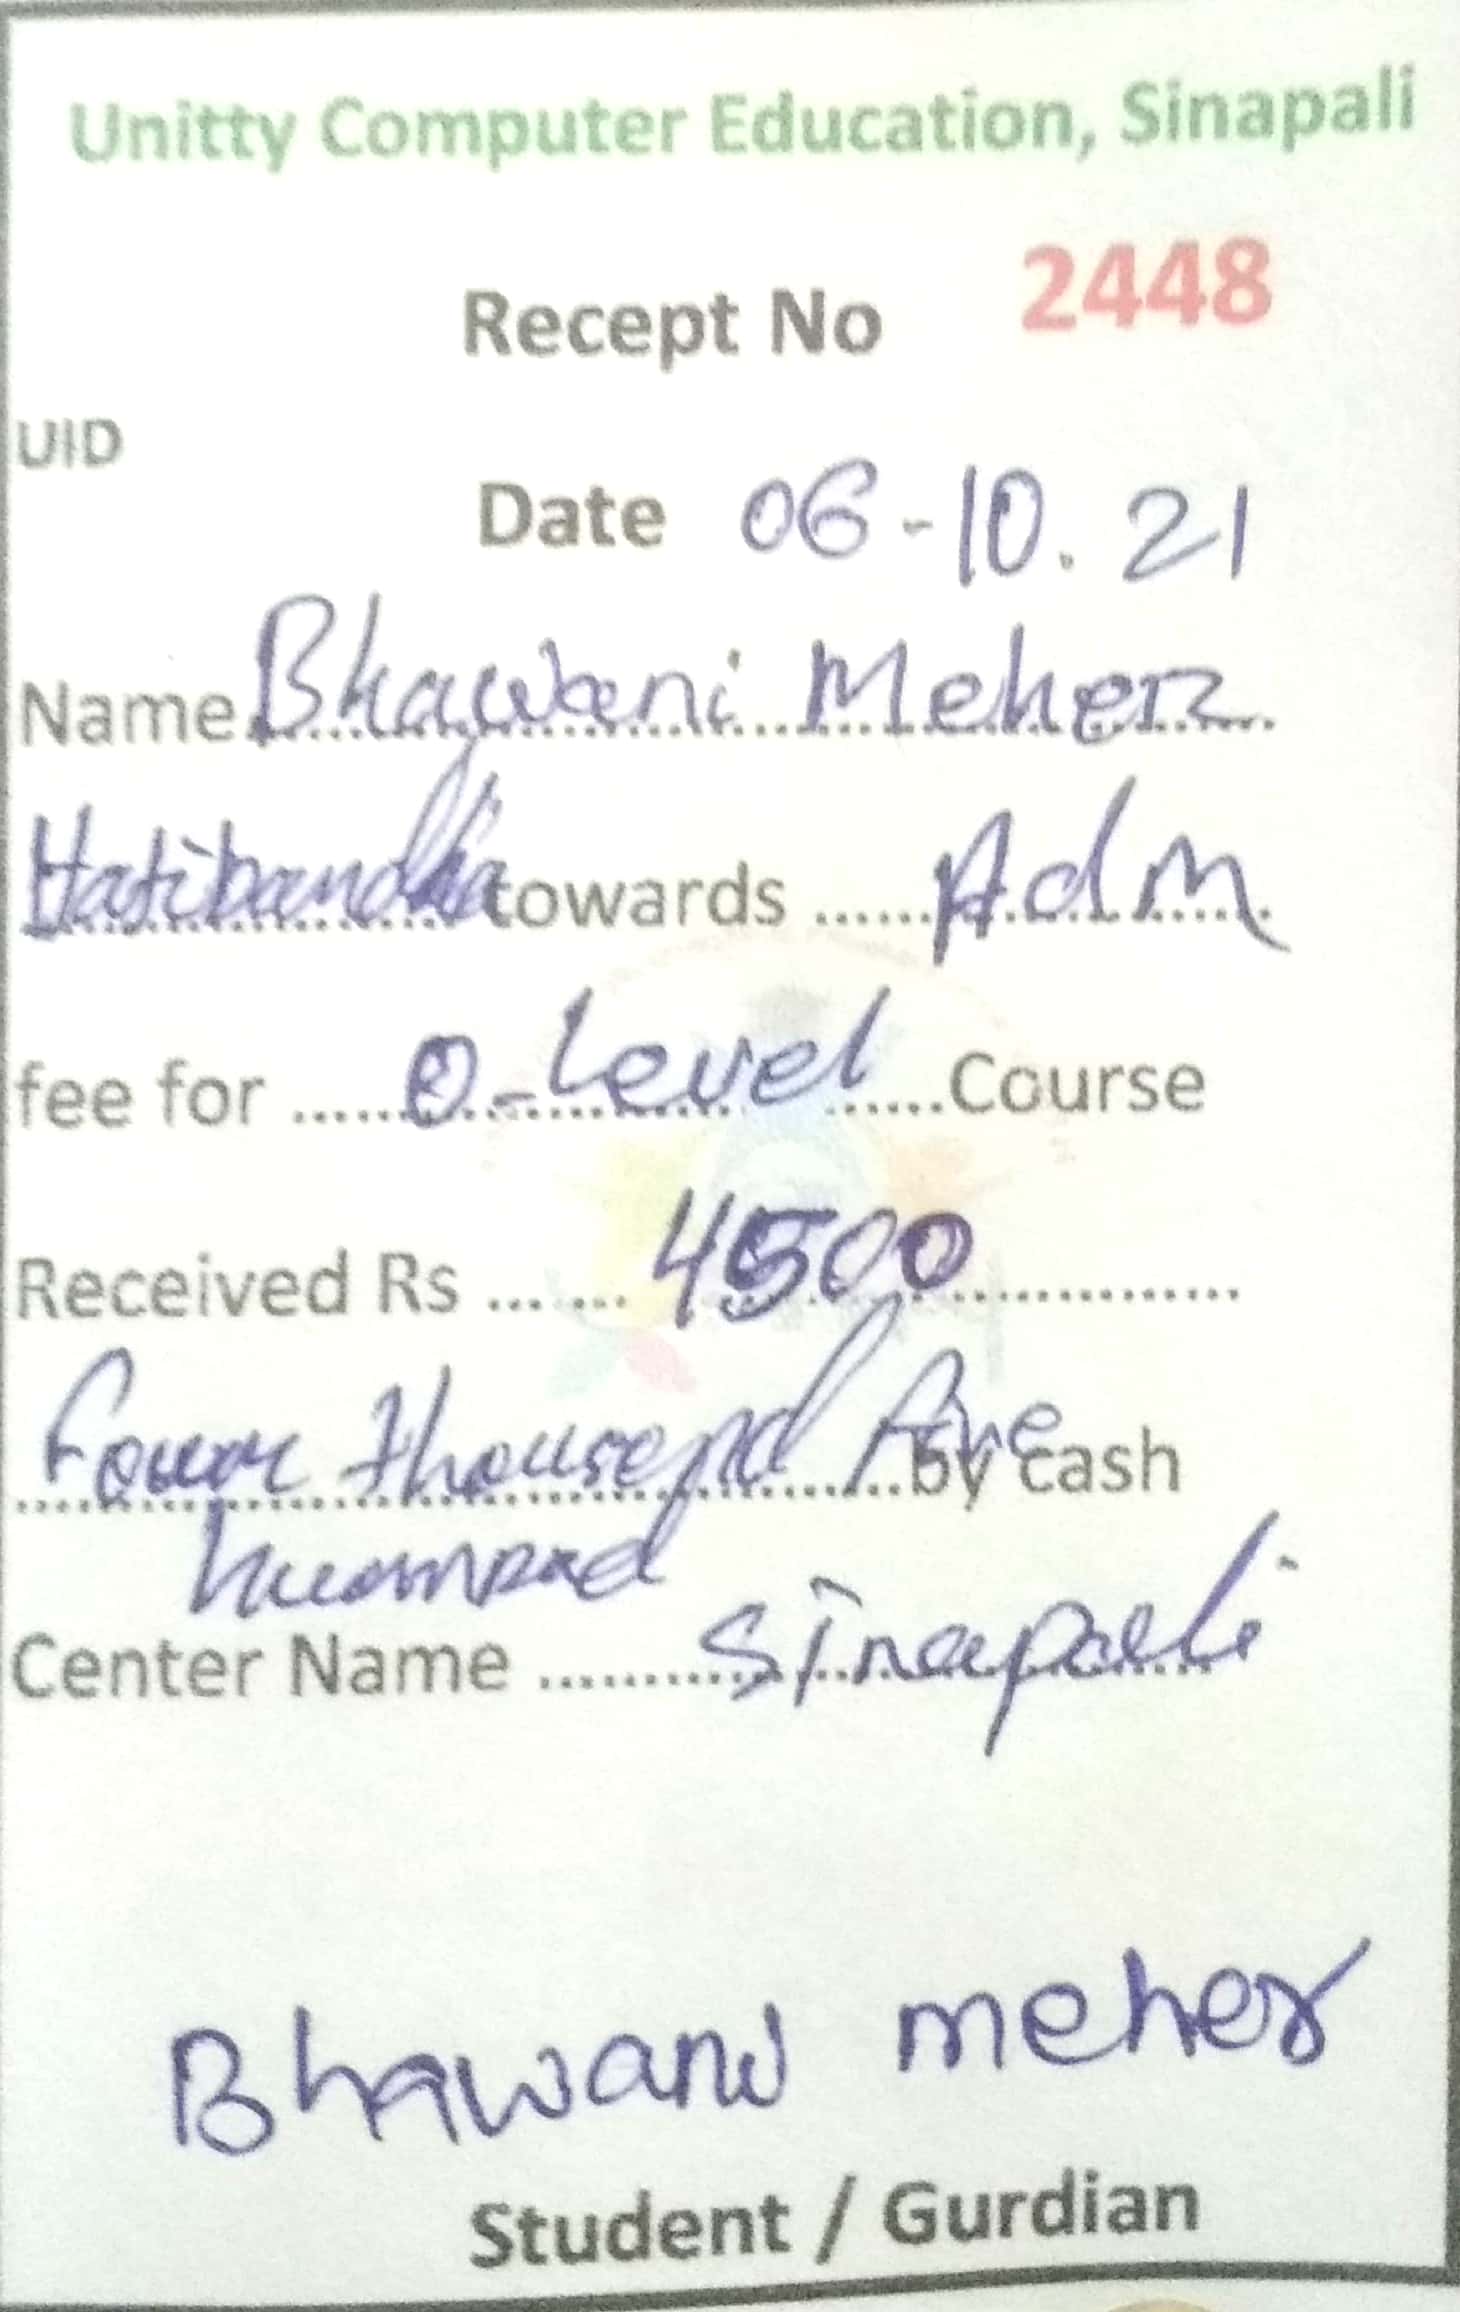 Unitty Computer Education, Sinapali
Recept No 2448
UID
Date 06-10.21
Name Bhawani Meher
Hatibandha towards ...... Adm
fee for ...... O-Level ...... Course
Received Rs ...... 4500 ..............
Four thousend five by cash
hundred
Center Name .......... Sinapali
Bhawani meher
Student / Gurdian